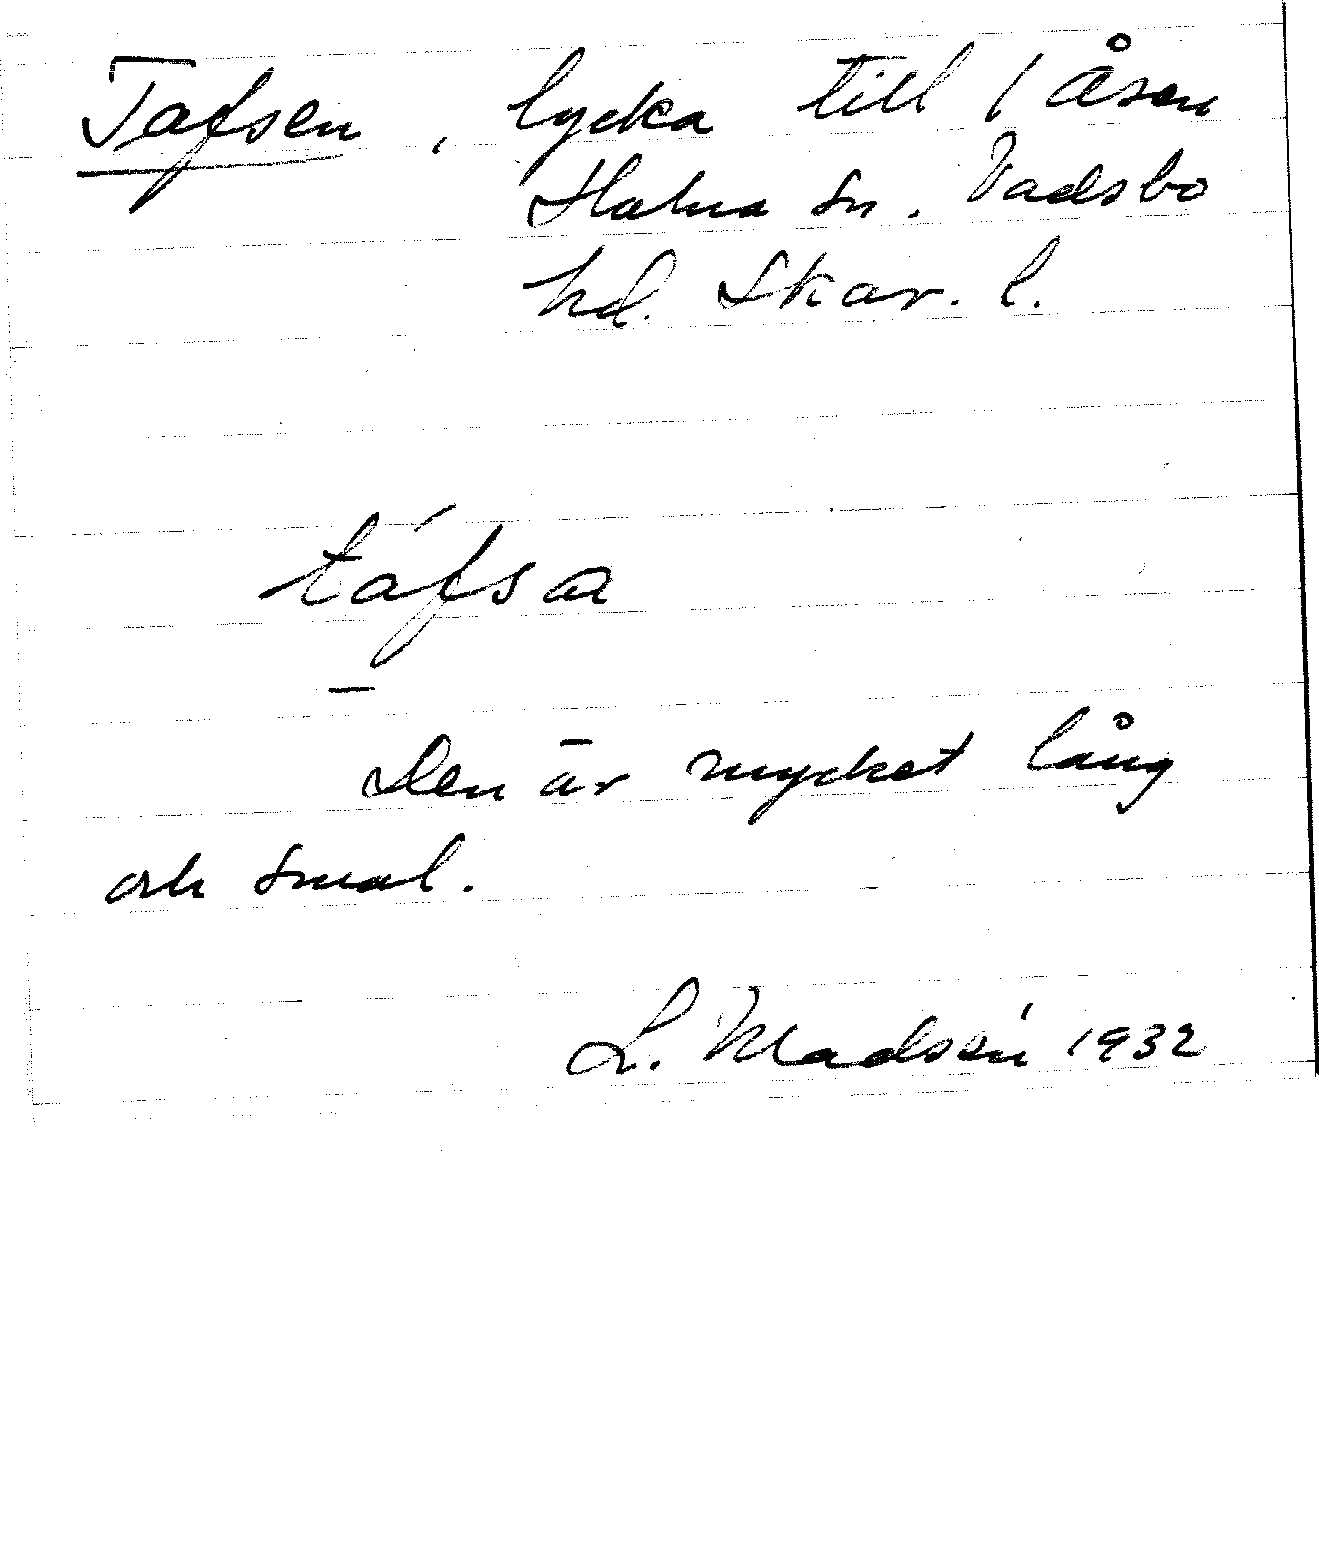 Tafsen, lycka till 1 Åsen
Halna sn. Vadsbo
hd. Skar. l.
táfsa
–
Den är mycket lång
och smal.
L. Madsén 1932